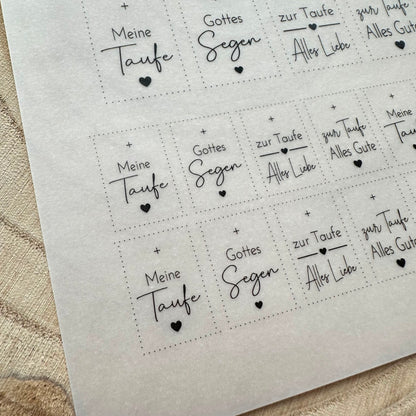 + Meine Taufe
Gottes Segen
zur Taufe Alles Liebe
zur Taufe Alles Gute
+ Meine Taufe
+ Gottes Segen
+ zur Taufe Alles Liebe
+ zur Taufe Alles Gute
+ Meine Taufe
+ Meine Taufe
+ Gottes Segen
+ zur Taufe Alles Liebe
+ zur Taufe Alles Gute